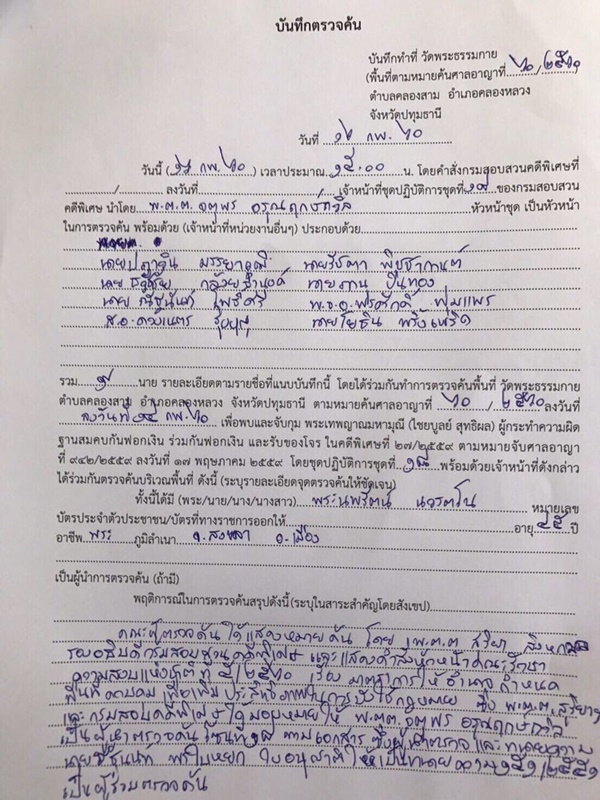 บันทึกตรวจค้น
บันทึกทำที่ วัดพระธรรมกาย
(พื้นที่ตามหมายค้นศาลอาญาที่ ๖๐ / ๒๕๖๐ )
ตำบลคลองสาม อำเภอคลองหลวง
จังหวัดปทุมธานี
วันที่ ๑๖ กพ. ๖๐
วันนี้ (๑๖ กพ. ๖๐) เวลาประมาณ ๑๕.๐๐ น. โดยคำสั่งกรมสอบสวนคดีพิเศษที่
/ ลงวันที่ / เจ้าหน้าที่ชุดปฏิบัติการชุดที่ ๑๗ ของกรมสอบสวน
คดีพิเศษ นำโดย พ.ต.ต. จตุพร อรุณฤกษ์ถวิล หัวหน้าชุด เป็นหัวหน้า
ในการตรวจค้น พร้อมด้วย (เจ้าหน้าที่หน่วยงานอื่นๆ) ประกอบด้วย
นาย นาย
นาย นาย ปั่นทอง
นาย โพธิ์ศรี พ.จ.อ. พรศักดิ์ พุ่มแพร
ส.อ. ดวงเนตร นายโยธิน
รวม ๗ นาย รายละเอียดตามรายชื่อที่แนบบันทึกนี้ โดยได้ร่วมกันทำการตรวจค้นพื้นที่ วัดพระธรรมกาย
ตำบลคลองสาม อำเภอคลองหลวง จังหวัดปทุมธานี ตามหมายค้นศาลอาญาที่ ๖๐ / ๒๕๖๐ ลงวันที่
ลงวันที่ ๑๕ กพ. ๖๐ เพื่อพบและจับกุม พระเทพญาณมหามุณี (ไชยบูลย์ สุทธิผล) ผู้กระทำความผิด
ฐานสมคบกันฟอกเงิน ร่วมกันฟอกเงิน และรับของโจร ในคดีพิเศษที่ ๒๗/๒๕๕๙ ตามหมายจับศาลอาญา
ที่ ๙๔๒/๒๕๕๙ ลงวันที่ ๑๗ พฤษภาคม ๒๕๕๙ โดยชุดปฏิบัติการชุดที่ ๑๗ พร้อมด้วยเจ้าหน้าที่ดังกล่าว
ได้ร่วมกันตรวจค้นบริเวณพื้นที่ ดังนี้ (ระบุรายละเอียดจุดตรวจค้นให้ชัดเจน)
ทั้งนี้ได้มี (พระ/นาย/นาง/นางสาว) พระนพรัตน์ หมายเลข
บัตรประจำตัวประชาชน/บัตรที่ทางราชการออกให้ อายุ ๕๕ ปี
อาชีพ พระ ภูมิลำเนา จ.สงขลา อ.เมือง
เป็นผู้นำการตรวจค้น (ถ้ามี)
พฤติการณ์ในการตรวจค้นสรุปดังนี้(ระบุในสาระสำคัญโดยสังเขป)
คณะผู้ตรวจค้น ได้แสดงหมายค้น โดย พ.ต.ต สุริยา
รองอธิบดีกรมสอบสวนคดีพิเศษ และแสดงคำสั่งหัวหน้าคณะรักษา
ความสงบแห่งชาติที่ ๕/๒๕๖๐ เรื่อง มาตรการให้อำนาจ กำหนด
พื้นที่ควบคุม เพื่อเพิ่มประสิทธิภาพในการบังคับใช้กฎหมาย ซึ่ง พ.ต.ต. สุริยาฯ
และกรมสอบคดีพิเศษ ได้มอบหมายให้ พ.ต.ต. จตุพร อรุณฤกษ์ถวิล
เป็นผู้นำตรวจค้น ตามเอกสาร ซึ่งผู้นำตรวจ และทนายความ
นาย ใบอนุญาตให้เป็นทนายความ
เป็นผู้ร่วมตรวจค้น